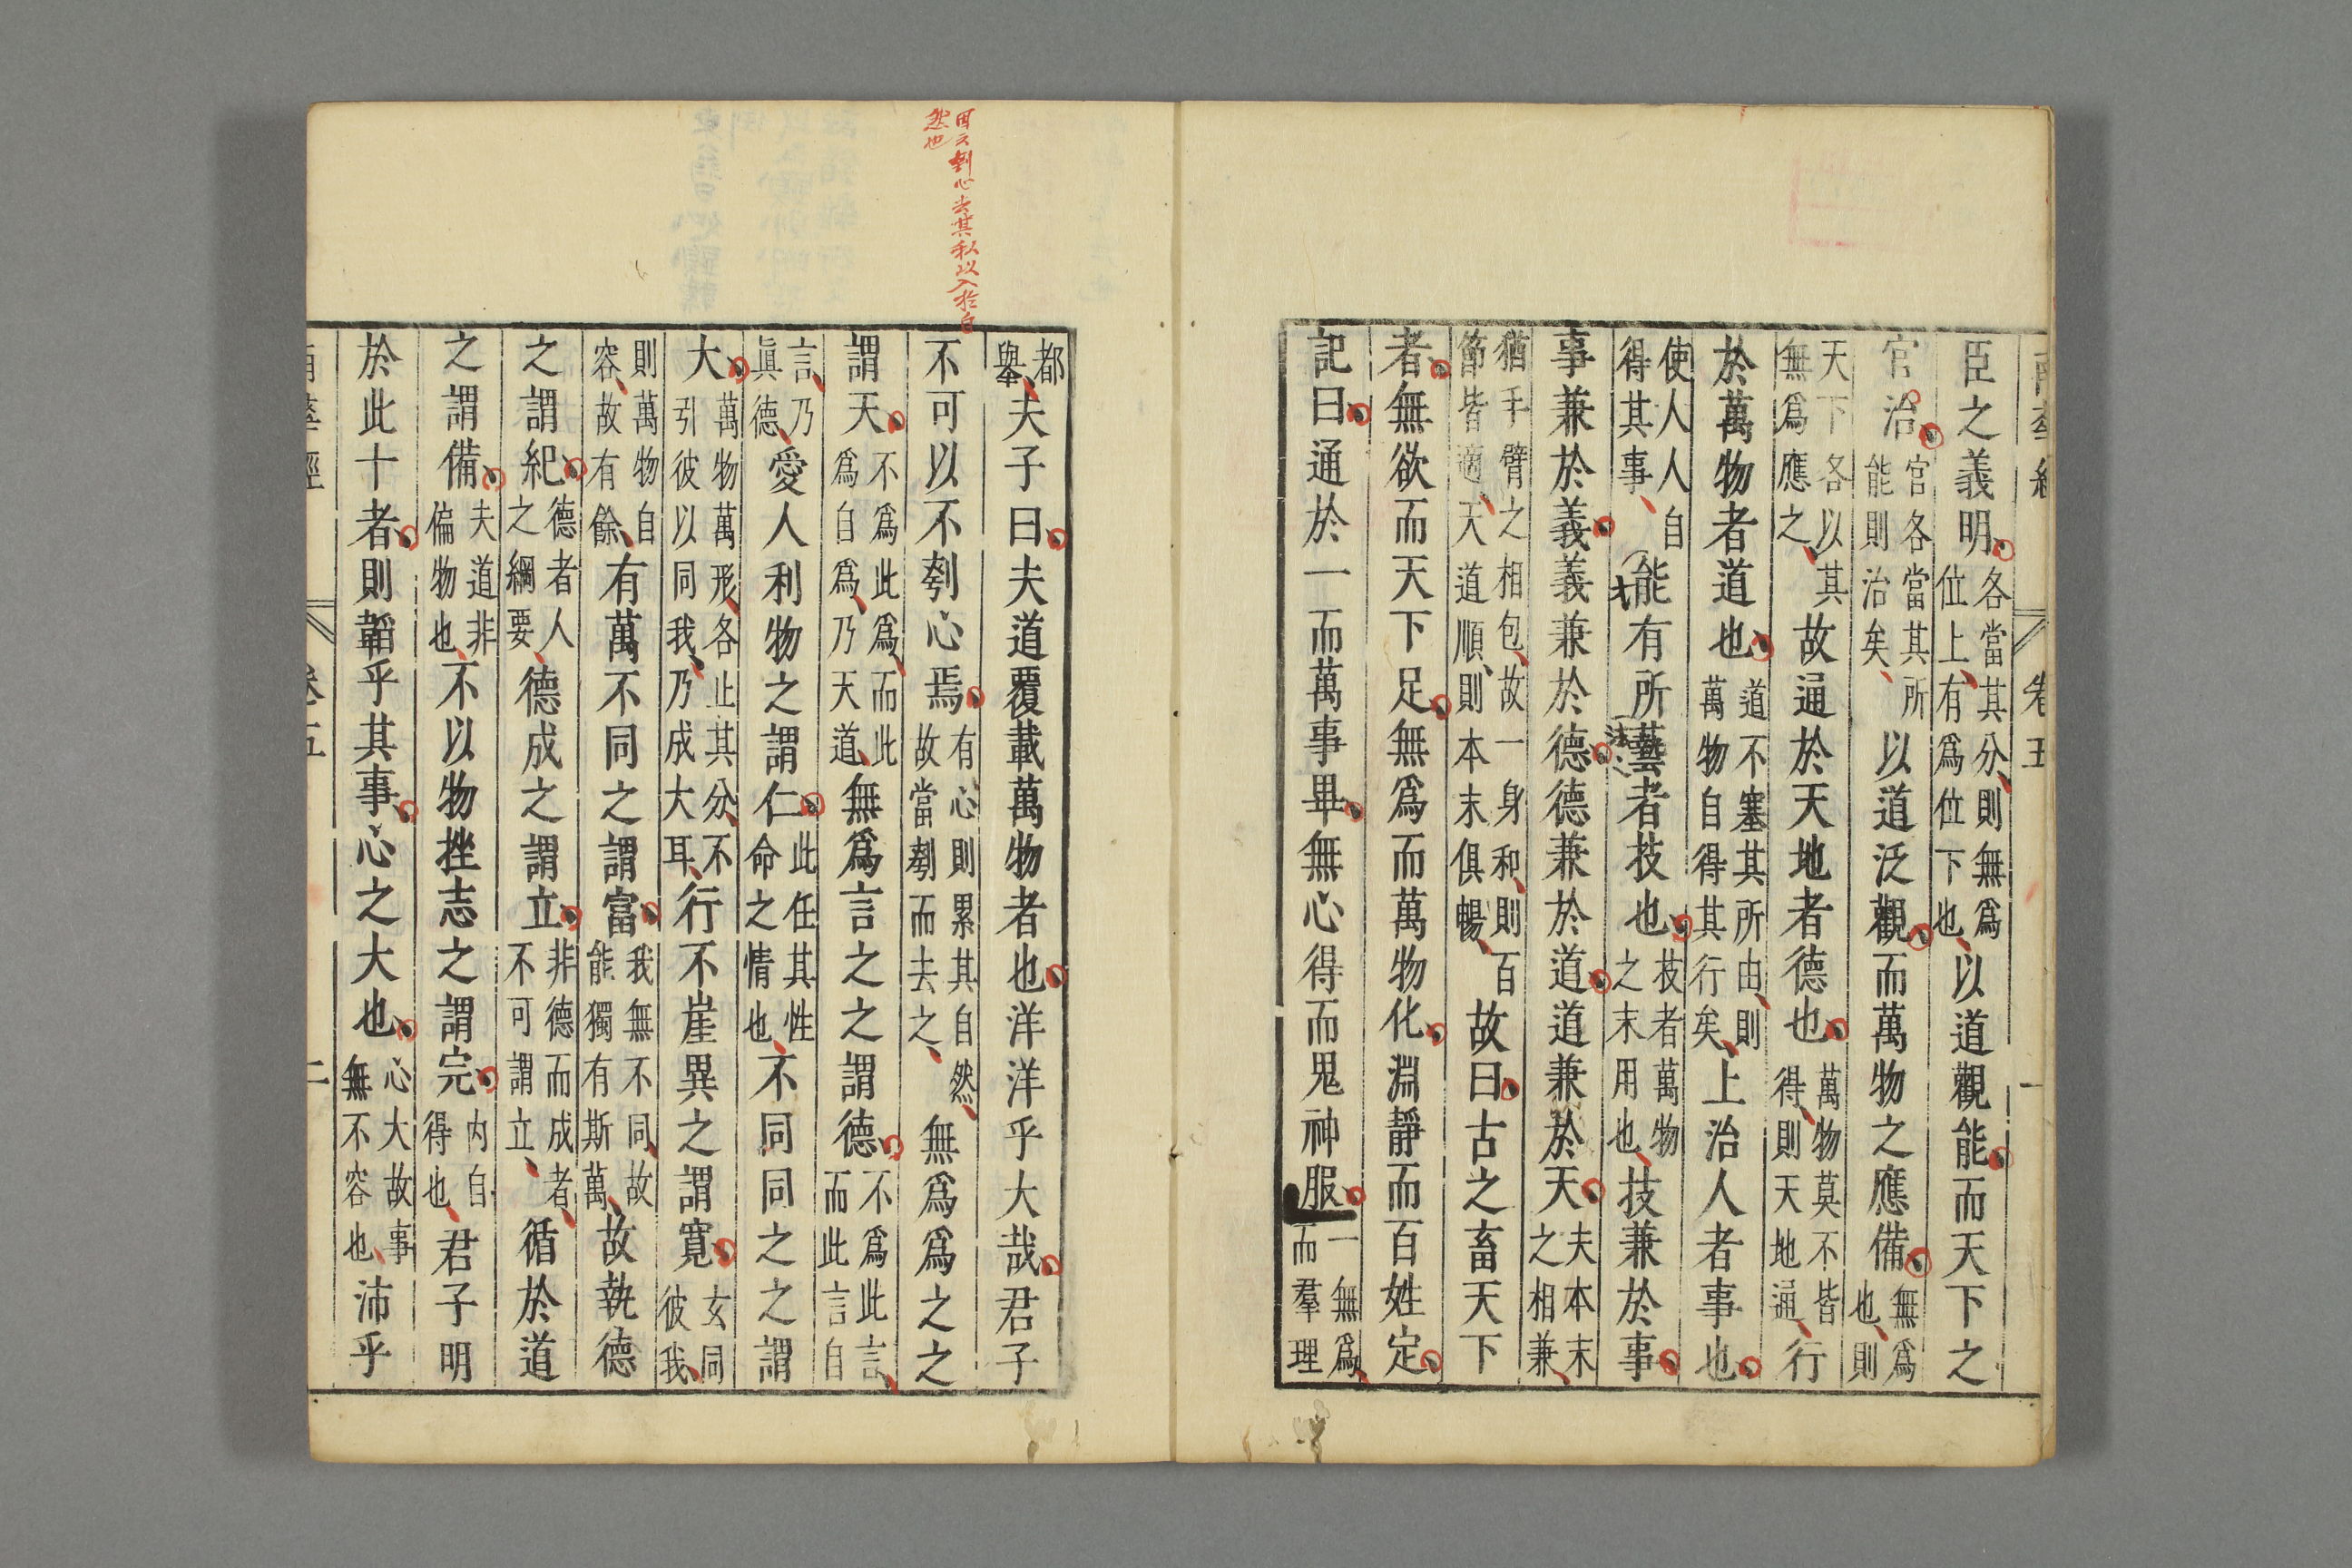 臣之義明各當其分則無爲位上有爲位下也以道觀能而天下之
官治官各當其所能則治矣以道泛觀而萬物之應備無爲也則
天下各以其無爲應之故通於天地者德也萬物莫不皆得則天地通行
於萬物者道也道不塞其所由則萬物自得其行矣上治人者事也
使人人自得其事能有所藝者技也技者萬物之末用也技兼於事
事兼於義義兼於德德兼於道道兼於天夫本末之相兼
猶手臂之相包故一身和則百節皆適天道順則本末俱暢故曰古之畜天下
者無欲而天下足無爲而萬物化淵靜而百姓定
記曰通於一而萬事畢無心得而鬼神服一無爲而羣理
都舉夫子曰夫道覆載萬物者也洋洋乎大哉君子
不可以不刳心焉有心則累其自然故當刳而去之無爲爲之之
謂天不爲此爲而此爲自爲乃天道無爲言之之謂德不爲此言而此言自
言乃眞德愛人利物之謂仁此任其性命之情也不同同之之謂
大萬物萬形各止其分不引彼以同我乃成大耳行不崖異之謂寬玄同彼我
則萬物自容故有餘有萬不同之謂富我無不同故能獨有斯萬故執德
之謂紀德者人之綱要德成之謂立非德而成者不可謂立循於道
之謂備夫道非偏物也不以物挫志之謂完內自得也君子明
於此十者則韜乎其事心之大也心大故事無不容也沛乎
卷五
二
刳心去其私以入於自
然也